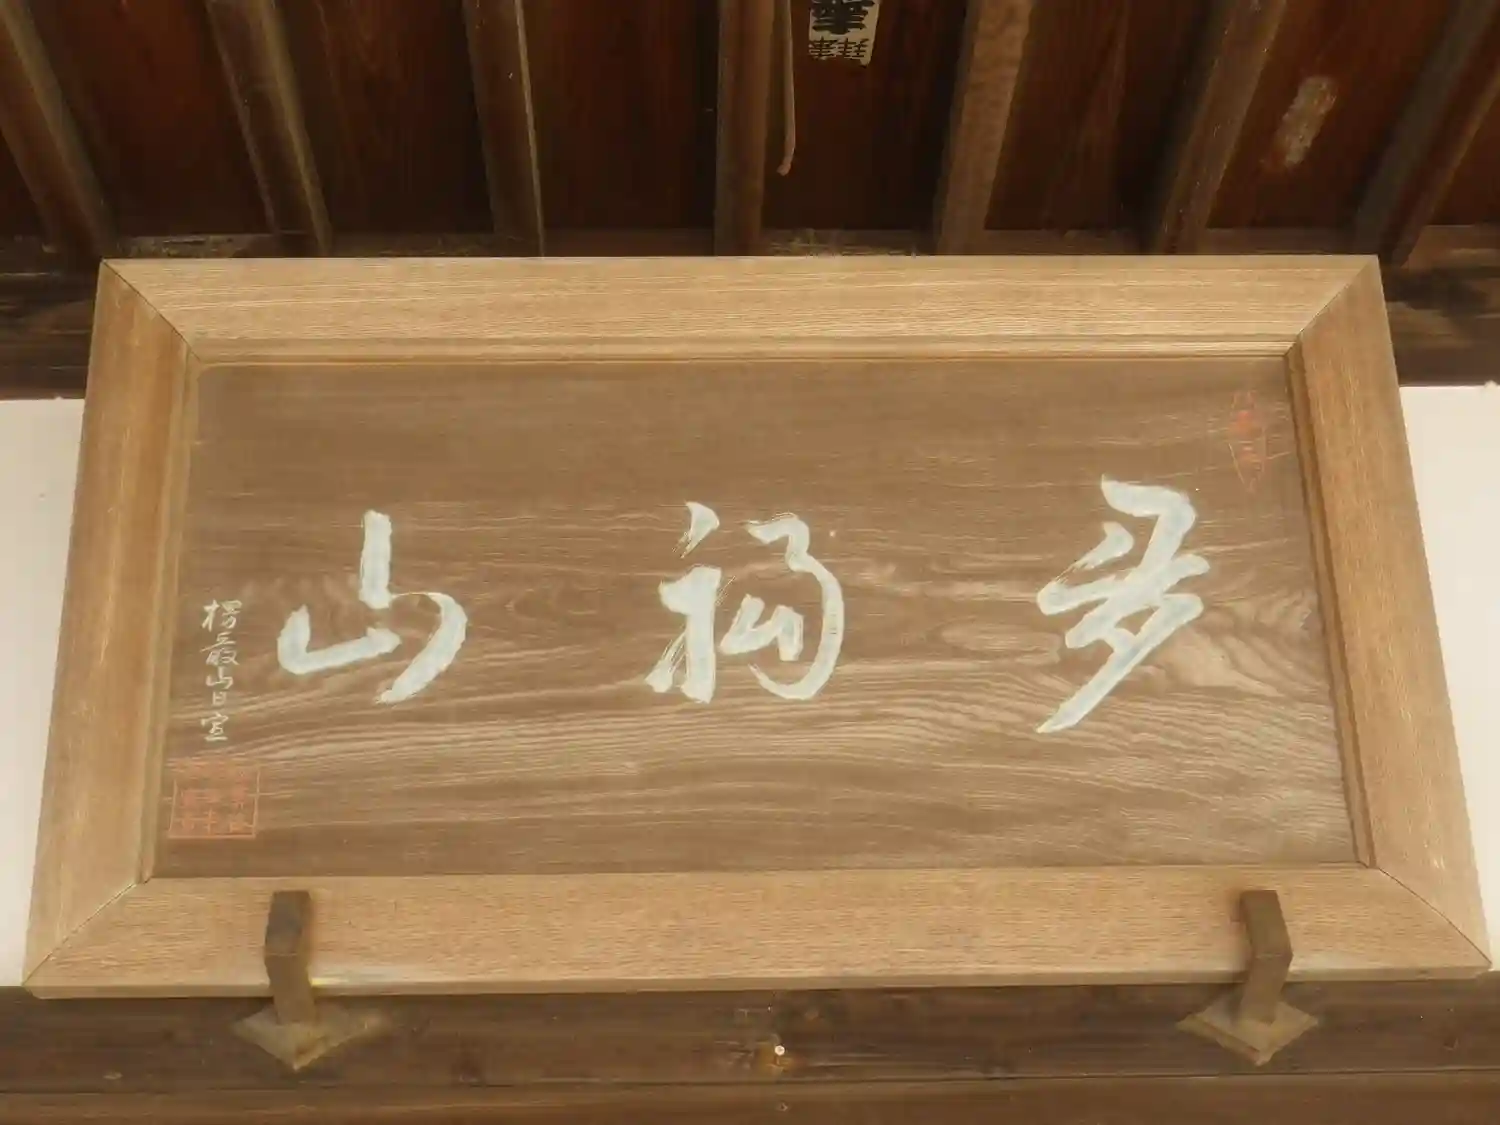 多福山
楞厳山日宣